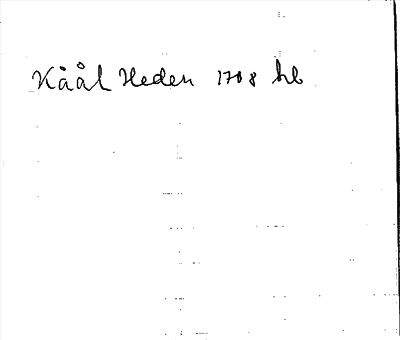 Kåål Heden 1708 hb